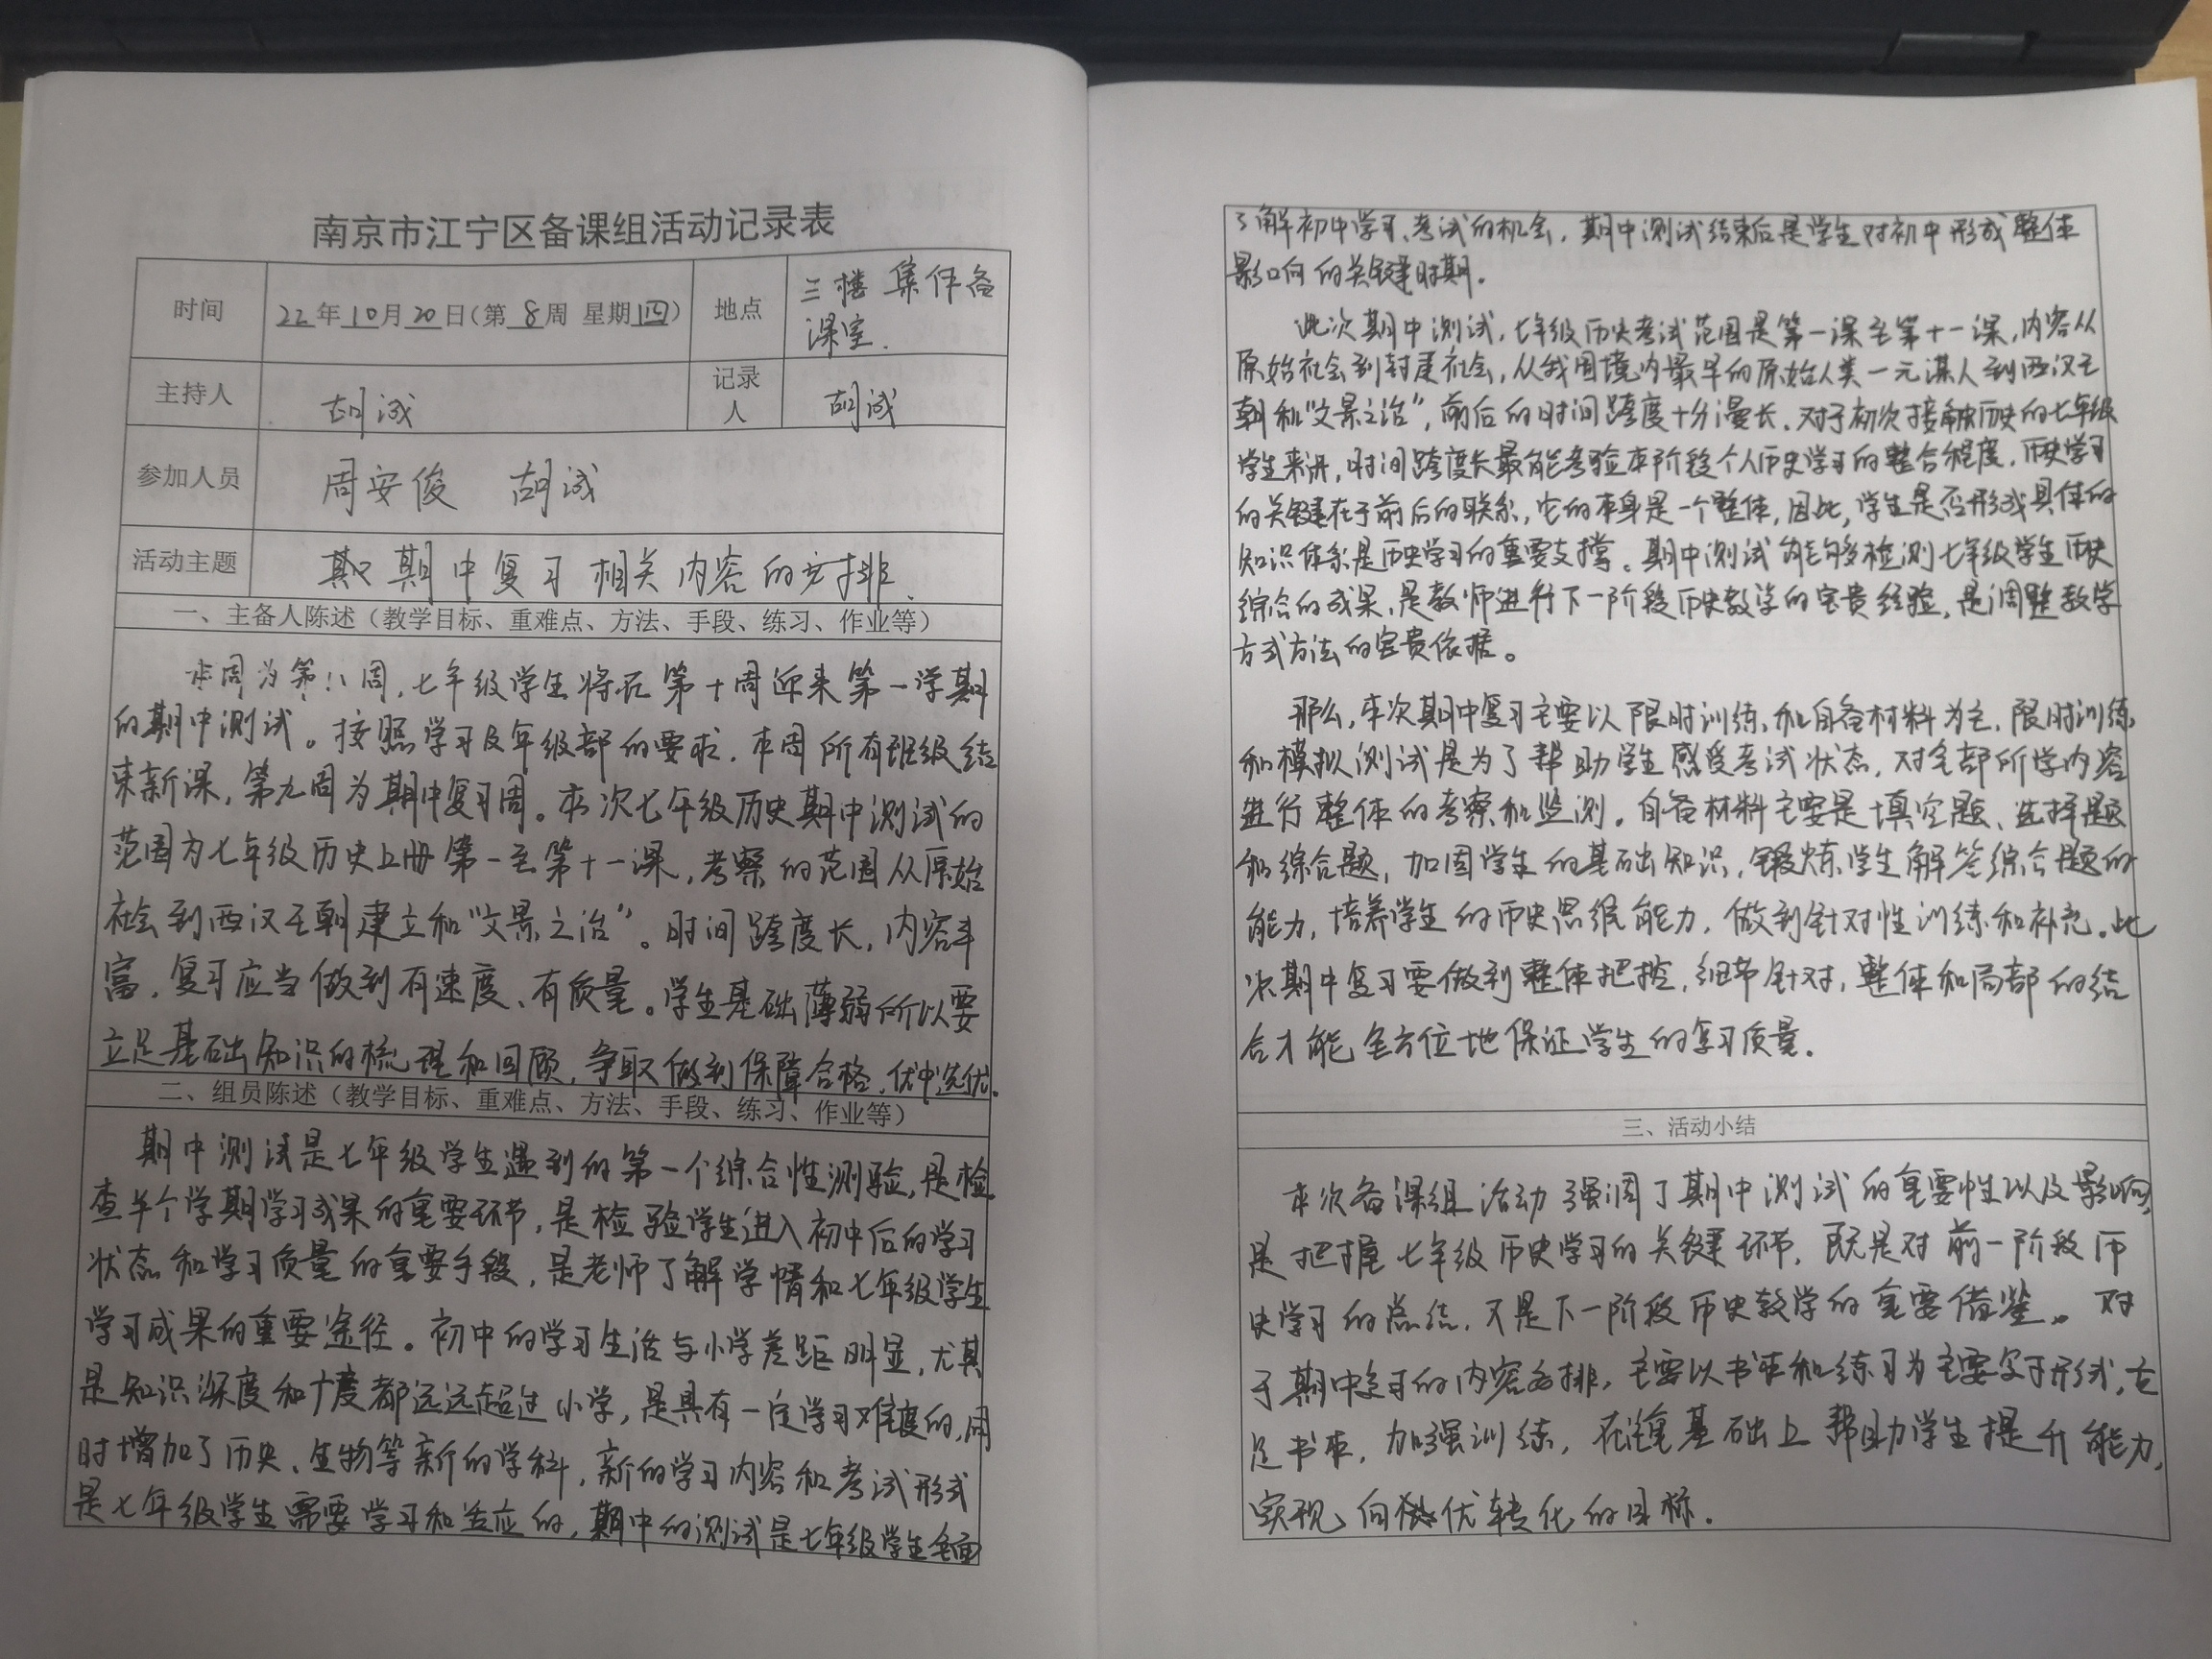 南京市江宁区备课组活动记录表
时间
22年10月20日(第8周 星期四)
地点
三楼 集体备
课室.
主持人
胡诚
记录
人
胡诚
参加人员
周安俊 胡诚
活动主题
期中复习相关内容的安排.
一、主备人陈述（教学目标、重难点、方法、手段、练习、作业等）
本周为第八周,七年级学生将在第十周迎来第一学期
的期中测试。按照学习及年级部的要求.本周所有班级结
束新课,第九周为期中复习周。本次七年级历史期中测试的
范围为七年级历史上册第一至第十一课,考察的范围从原始
社会到西汉王朝建立和“文景之治”。时间跨度长,内容丰
富,复习应当做到有速度、有质量。学生基础薄弱所以要
立足基础知识的梳理和回顾,争取做到保障合格、优中选优.
二、组员陈述（教学目标、重难点、方法、手段、练习、作业等）
期中测试是七年级学生遇到的第一个综合性测验,是检
查半个学期学习成果的重要环节,是检验学生进入初中后的学习
状态和学习质量的重要手段,是老师了解学情和七年级学生
学习成果的重要途径。初中的学习生活与小学差距明显,尤其
是知识深度和广度都远远超过小学,是具有一定学习难度的,同
时增加了历史、生物等新的学科,新的学习内容和考试形式
是七年级学生需要学习和适应的,期中的测试是七年级学生全面
了解初中学习、考试的机会,期中测试结束后是学生对初中形成整体
影响的关键时期.
此次期中测试,七年级历史考试范围是第一课至第十一课,内容从
原始社会到封建社会,从我国境内最早的原始人类一元谋人到西汉王
朝和“文景之治”,前后的时间跨度十分漫长.对于初次接触历史的七年级
学生来讲,时间跨度长最能考验本阶段个人历史学习的整合程度.历史学习
的关键在于前后的联系,它的本身是一个整体,因此,学生是否形成具体的
知识体系是历史学习的重要支撑。期中测试能够检测七年级学生历史
综合的成果,是教师进行下一阶段历史教学的宝贵经验,是调整教学
方式方法的宝贵依据。
那么,本次期中复习主要以限时训练和自备材料为主.限时训练
和模拟测试是为了帮助学生感受考试状态,对全部所学内容
进行整体的考察和监测。自备材料主要是填空题、选择题
和综合题,加固学生的基础知识,锻炼学生解答综合题的
能力,培养学生的历史思维能力,做到针对性训练和补充。此
次期中复习要做到整体把控,细节针对,整体和局部的结
合才能全方位地保证学生的复习质量.
三、活动小结
本次备课组活动强调了期中测试的重要性以及影响,
是把握七年级历史学习的关键环节,既是对前一阶段历
史学习的总结,又是下一阶段历史教学的重要借鉴。对
于期中复习的内容安排,主要以书本和练习为主要复习形式,立
足书本,加强训练,在注重基础上帮助学生提升能力,
实现向优转化的目标.